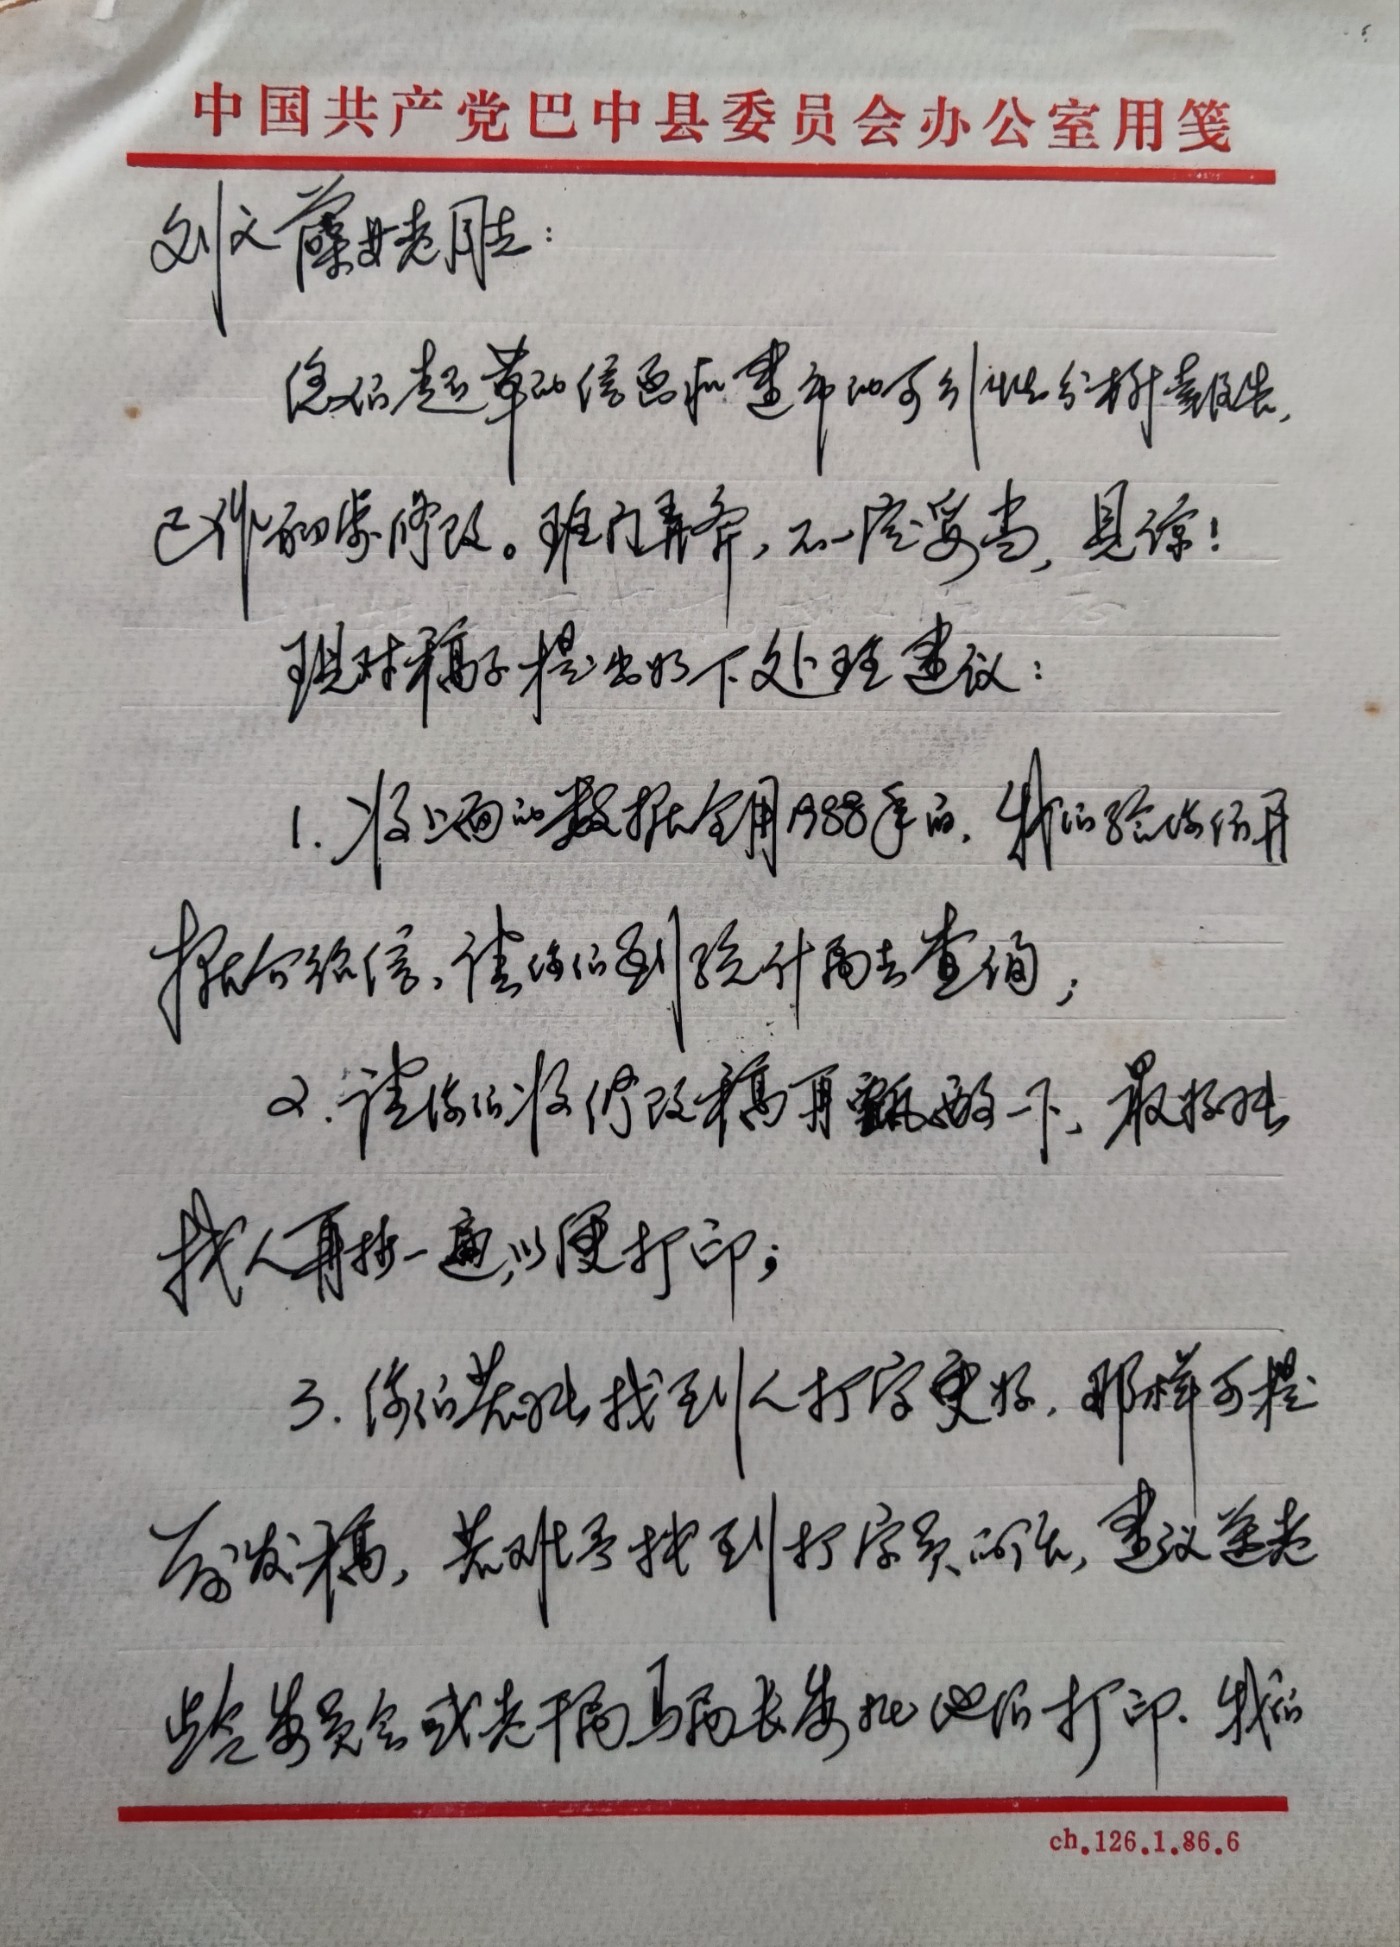 中国共产党巴中县委员会办公室用笺
刘文藻等老同志：
您们起草的信函和建市的可行性分析报告，
已作初步修改。班门弄斧，不一定妥当，见谅！
现对稿子提出如下处理建议：
1.将上面的数据全用1988年的，我们给你们开
据介绍信，请你们到统计局去查询；
2.请你们将修改稿再斟酌一下，最好能
找人再抄一遍，以便打印；
3.你们若能找到人打字更好，那样可提
前发稿，若难于找到打字员的话，建议送老
龄委员会或老干局马局长委托他们打印。我们
ch.126.1.86.6